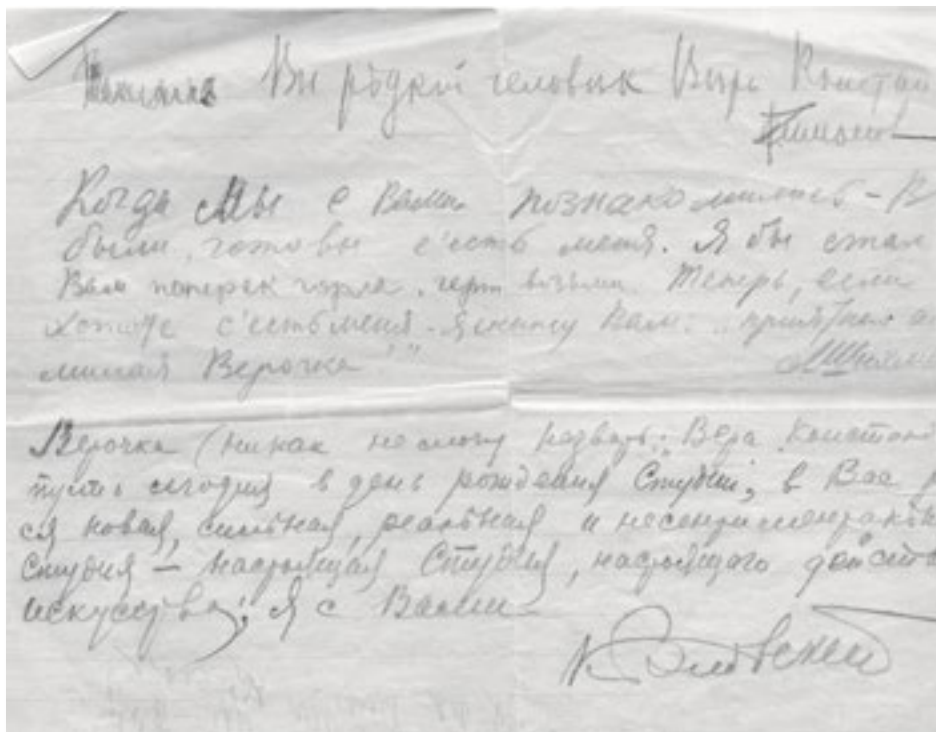 Вы рѣдкой человик Виръ Констан
Когда мы с Вами познакомились - В
были готовы с'есть меня. Я бы стал
Вам поперек горла, черт возьми. Теперь, если
хотите с'есть меня - я скажу Вам: „приятного а
милая Верочка"
Верочка (никак не могу назвать: Вера Констан
пусть сегодня в день рождения Студии, в Вас р
ся новая, сильная, реальная и несентиментальн
студия — настоящая Студия, настоящего
искусства; Я с Вами